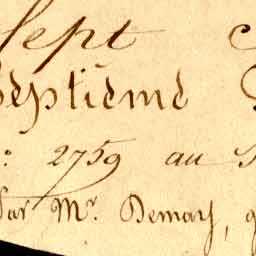 Sept
septième
: 2759 au
Par Mr. Demay,